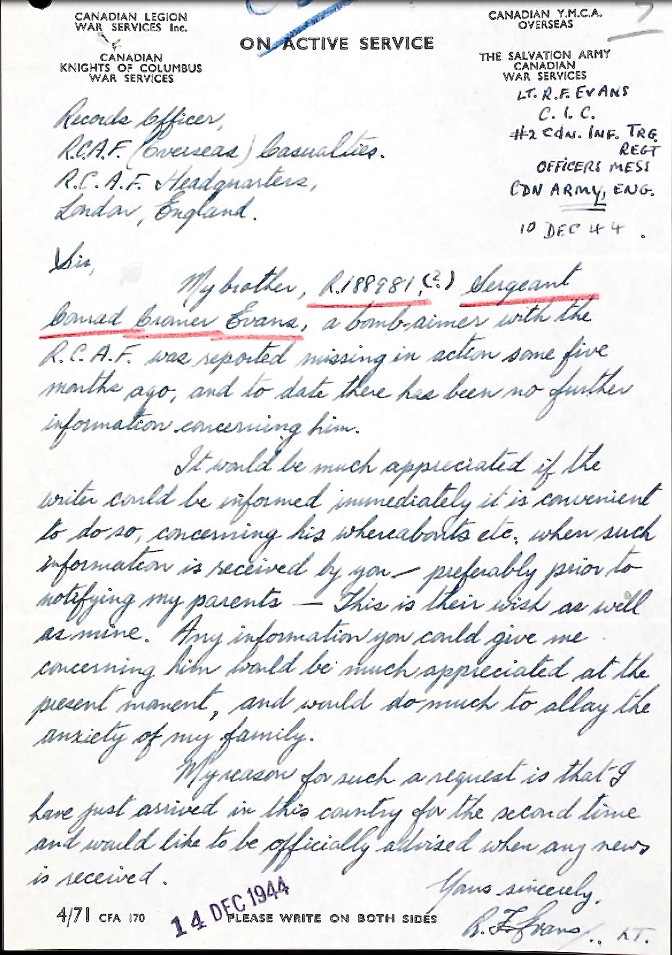 CANADIAN LEGION
WAR SERVICES Inc.
CANADIAN
KNIGHTS OF COLUMBUS
WAR SERVICES
ON ACTIVE SERVICE
CANADIAN Y.M.C.A.
OVERSEAS
THE SALVATION ARMY
CANADIAN
WAR SERVICES
LT. R.F. EVANS
C. I. C.
#2 CDN. INF. TRG.
REGT
OFFICERS MESS
CDN ARMY, ENG.
10 DEC 44.
Records Officer,
R.C.A.F. (Overseas) Casualties.
R.C.A.F. Headquarters,
London, England.
Sir,
My brother, R.188981 (?) Sergeant
Conrad Cromer Evans, a bomb-aimer with the
R.C.A.F. was reported missing in action some five
months ago, and to date there has been no further
information concerning him.
It would be much appreciated if the
writer could be informed immediately it is convenient
to do so, concerning his whereabouts etc., when such
information is received by you — preferably prior to
notifying my parents — This is their wish as well
as mine. Any information you could give me
concerning him would be much appreciated at the
present moment, and would do much to allay the
anxiety of my family.
My reason for such a request is that I
have just arrived in this country for the second time
and would like to be officially advised when any news
is received.
Yours sincerely,
R. F. Evans LT.
4/71 CFA 170
14 DEC 1944
PLEASE WRITE ON BOTH SIDES